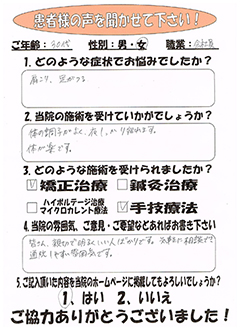 患者様の声を聞かせて下さい！
ご年齢：30代 性別：男・女 職業：会社員
1．どのような症状でお悩みでしたか？
肩こり、足がつる
2．当院の施術を受けていかがでしょうか？
体の調子がよく、夜しっかり眠れます。
体が楽です。
3．どのような施術を受けられましたか？
☑矯正治療 □鍼灸治療
□ハイボルテージ治療
マイクロカレント療法 ☑手技療法
4．当院の雰囲気、ご意見・ご要望などあればお書き下さい
皆さん、親切で明るくいい人ばかりです。気軽に相談でき
通状しやすい雰囲気です。
5．ご記入頂いた内容を当院のホームページに掲載してもよろしいでしょうか？
1、はい 2、いいえ
ご協力ありがとうございました！